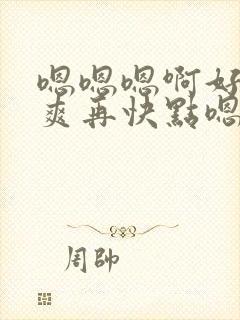 嗯嗯嗯啊好
爽再快點嗯
周帥